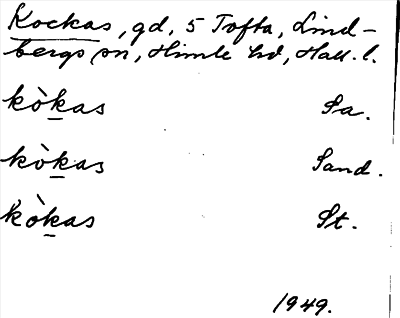 Kockas, gd, 5 Tofta, Lind-
bergs sn, Himle hd, Hall. l.
kòkas Sa.
kòkas Sand.
kòkas St.
1949.